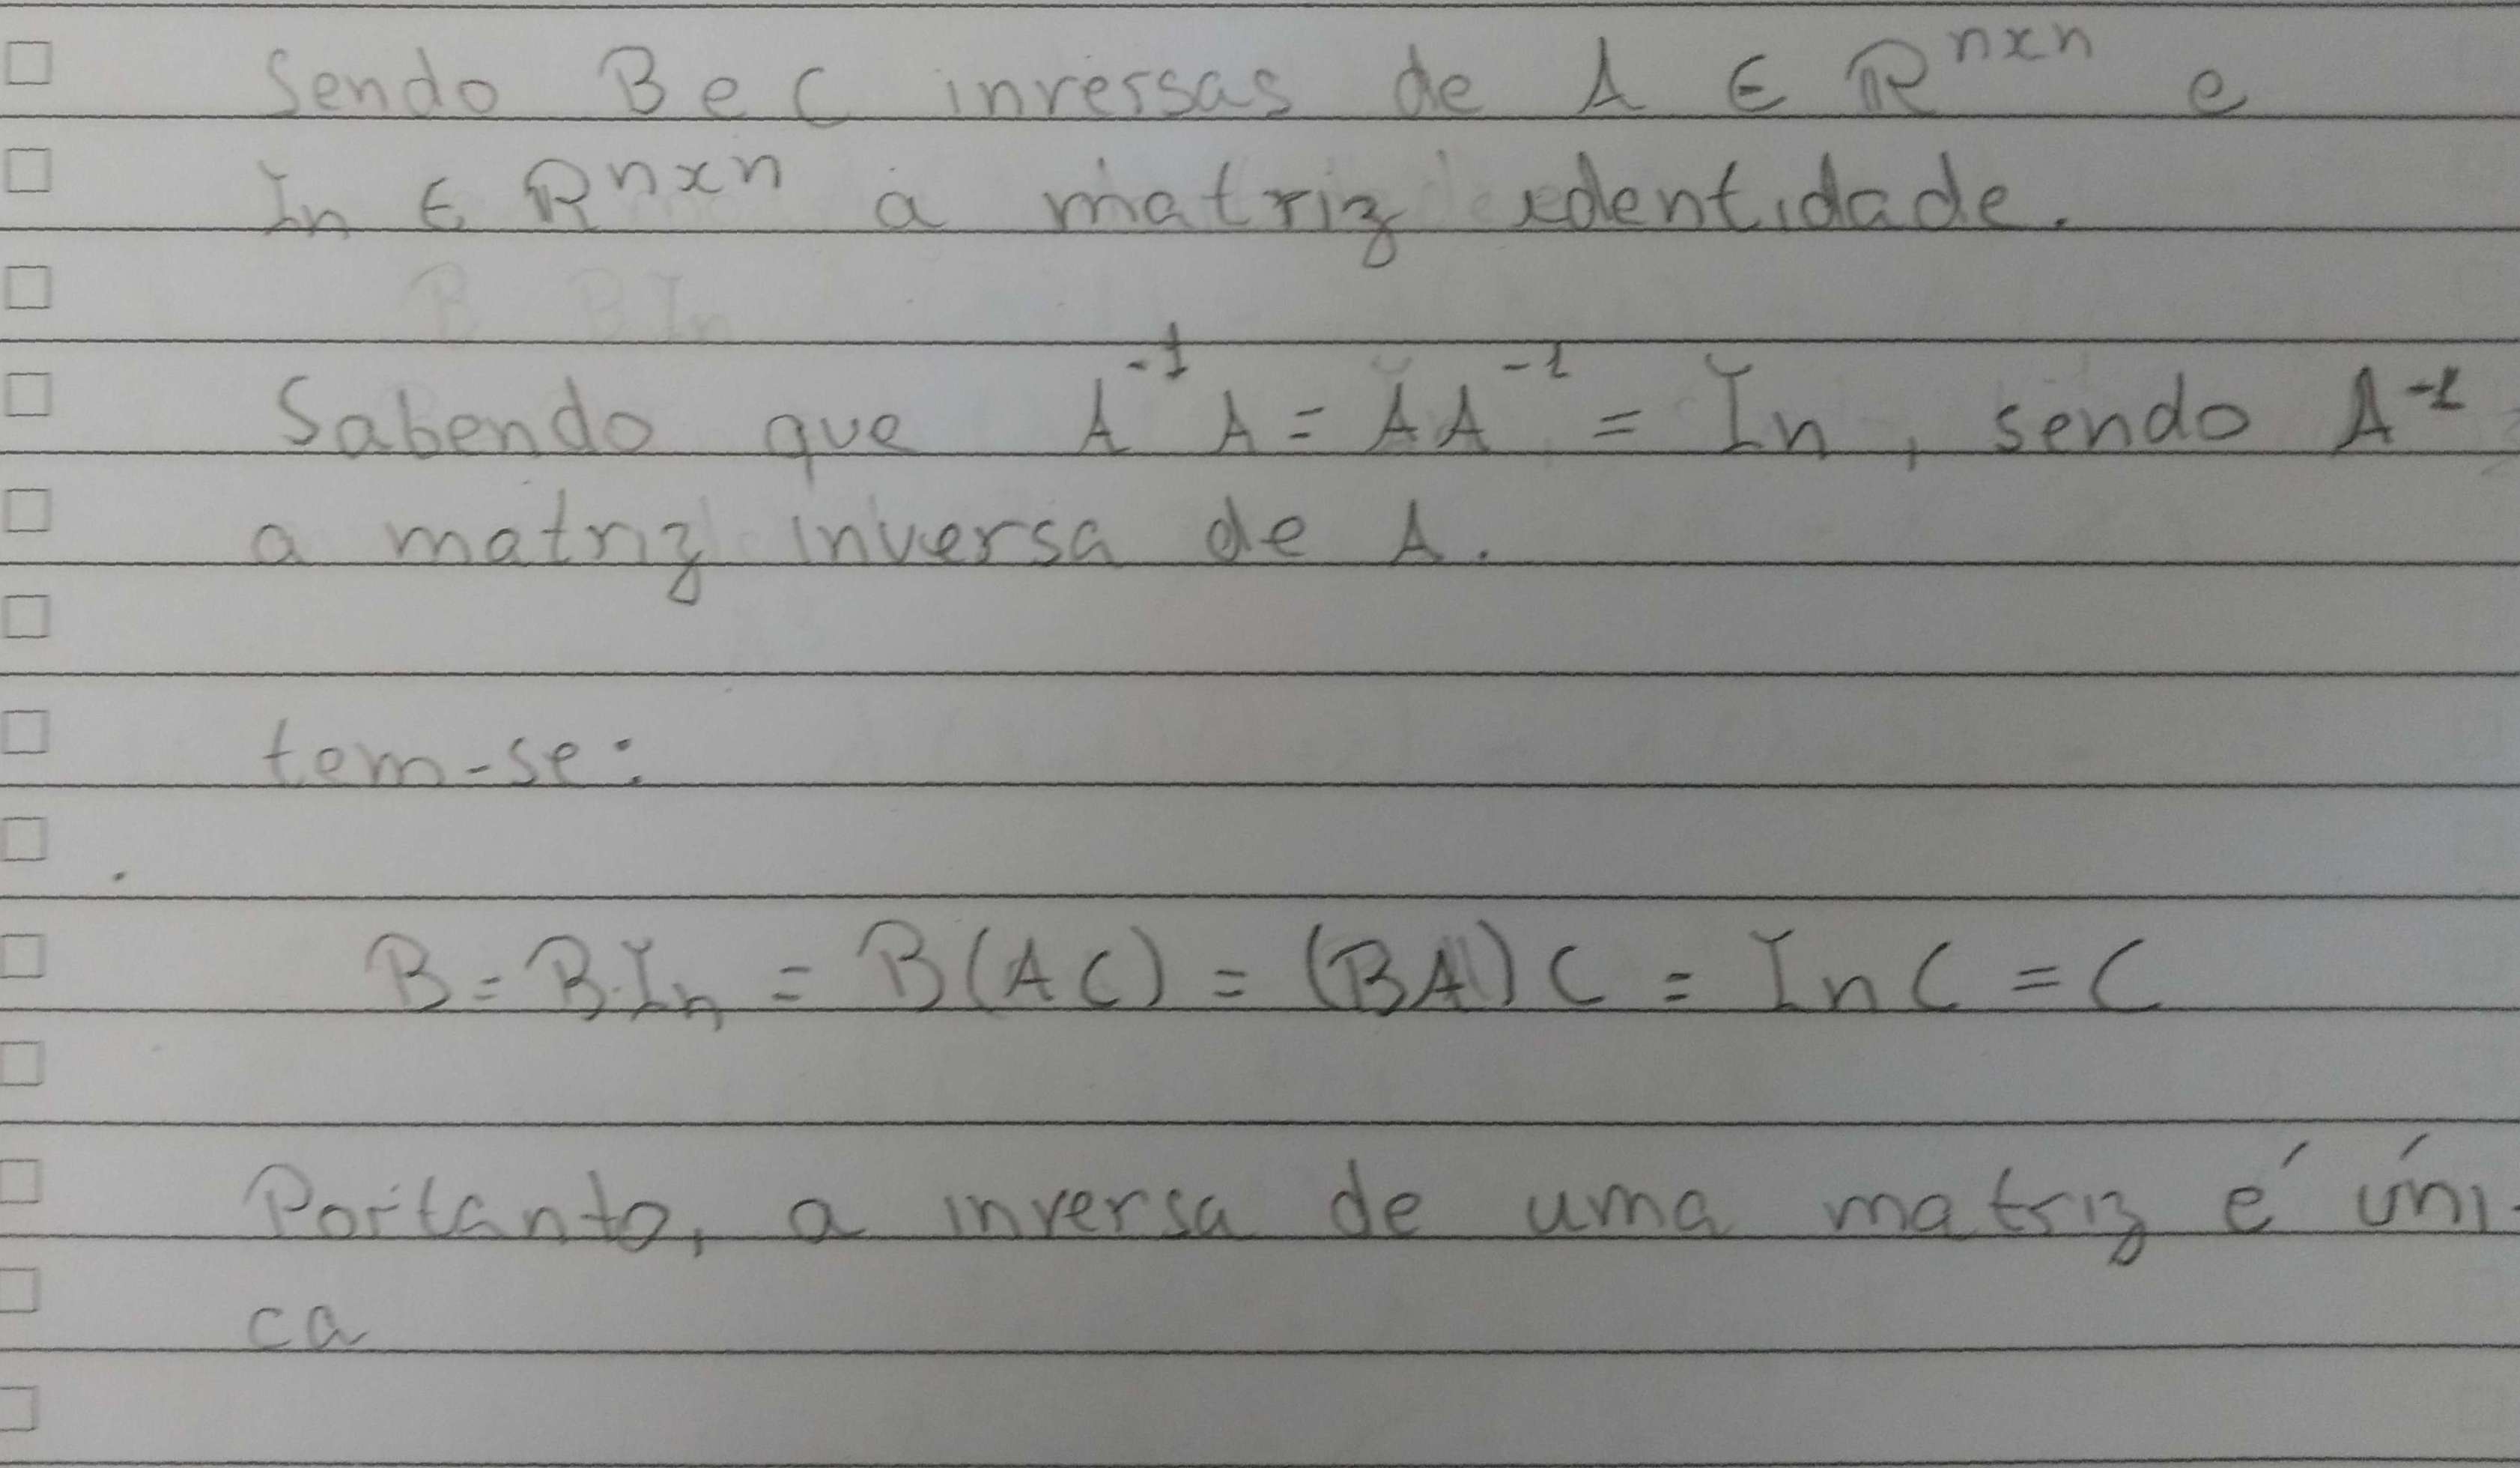 Sendo B e C inversas de A ∈ ℝⁿˣⁿ e
In ∈ ℝⁿˣⁿ a matriz identidade.
B BIn
Sabendo que A⁻¹A = AA⁻¹ = In, sendo A⁻¹
a matriz inversa de A.
tem-se:
B = B.In = B(AC) = (BA)C = InC = C
Portanto, a inversa de uma matriz é úni-
ca